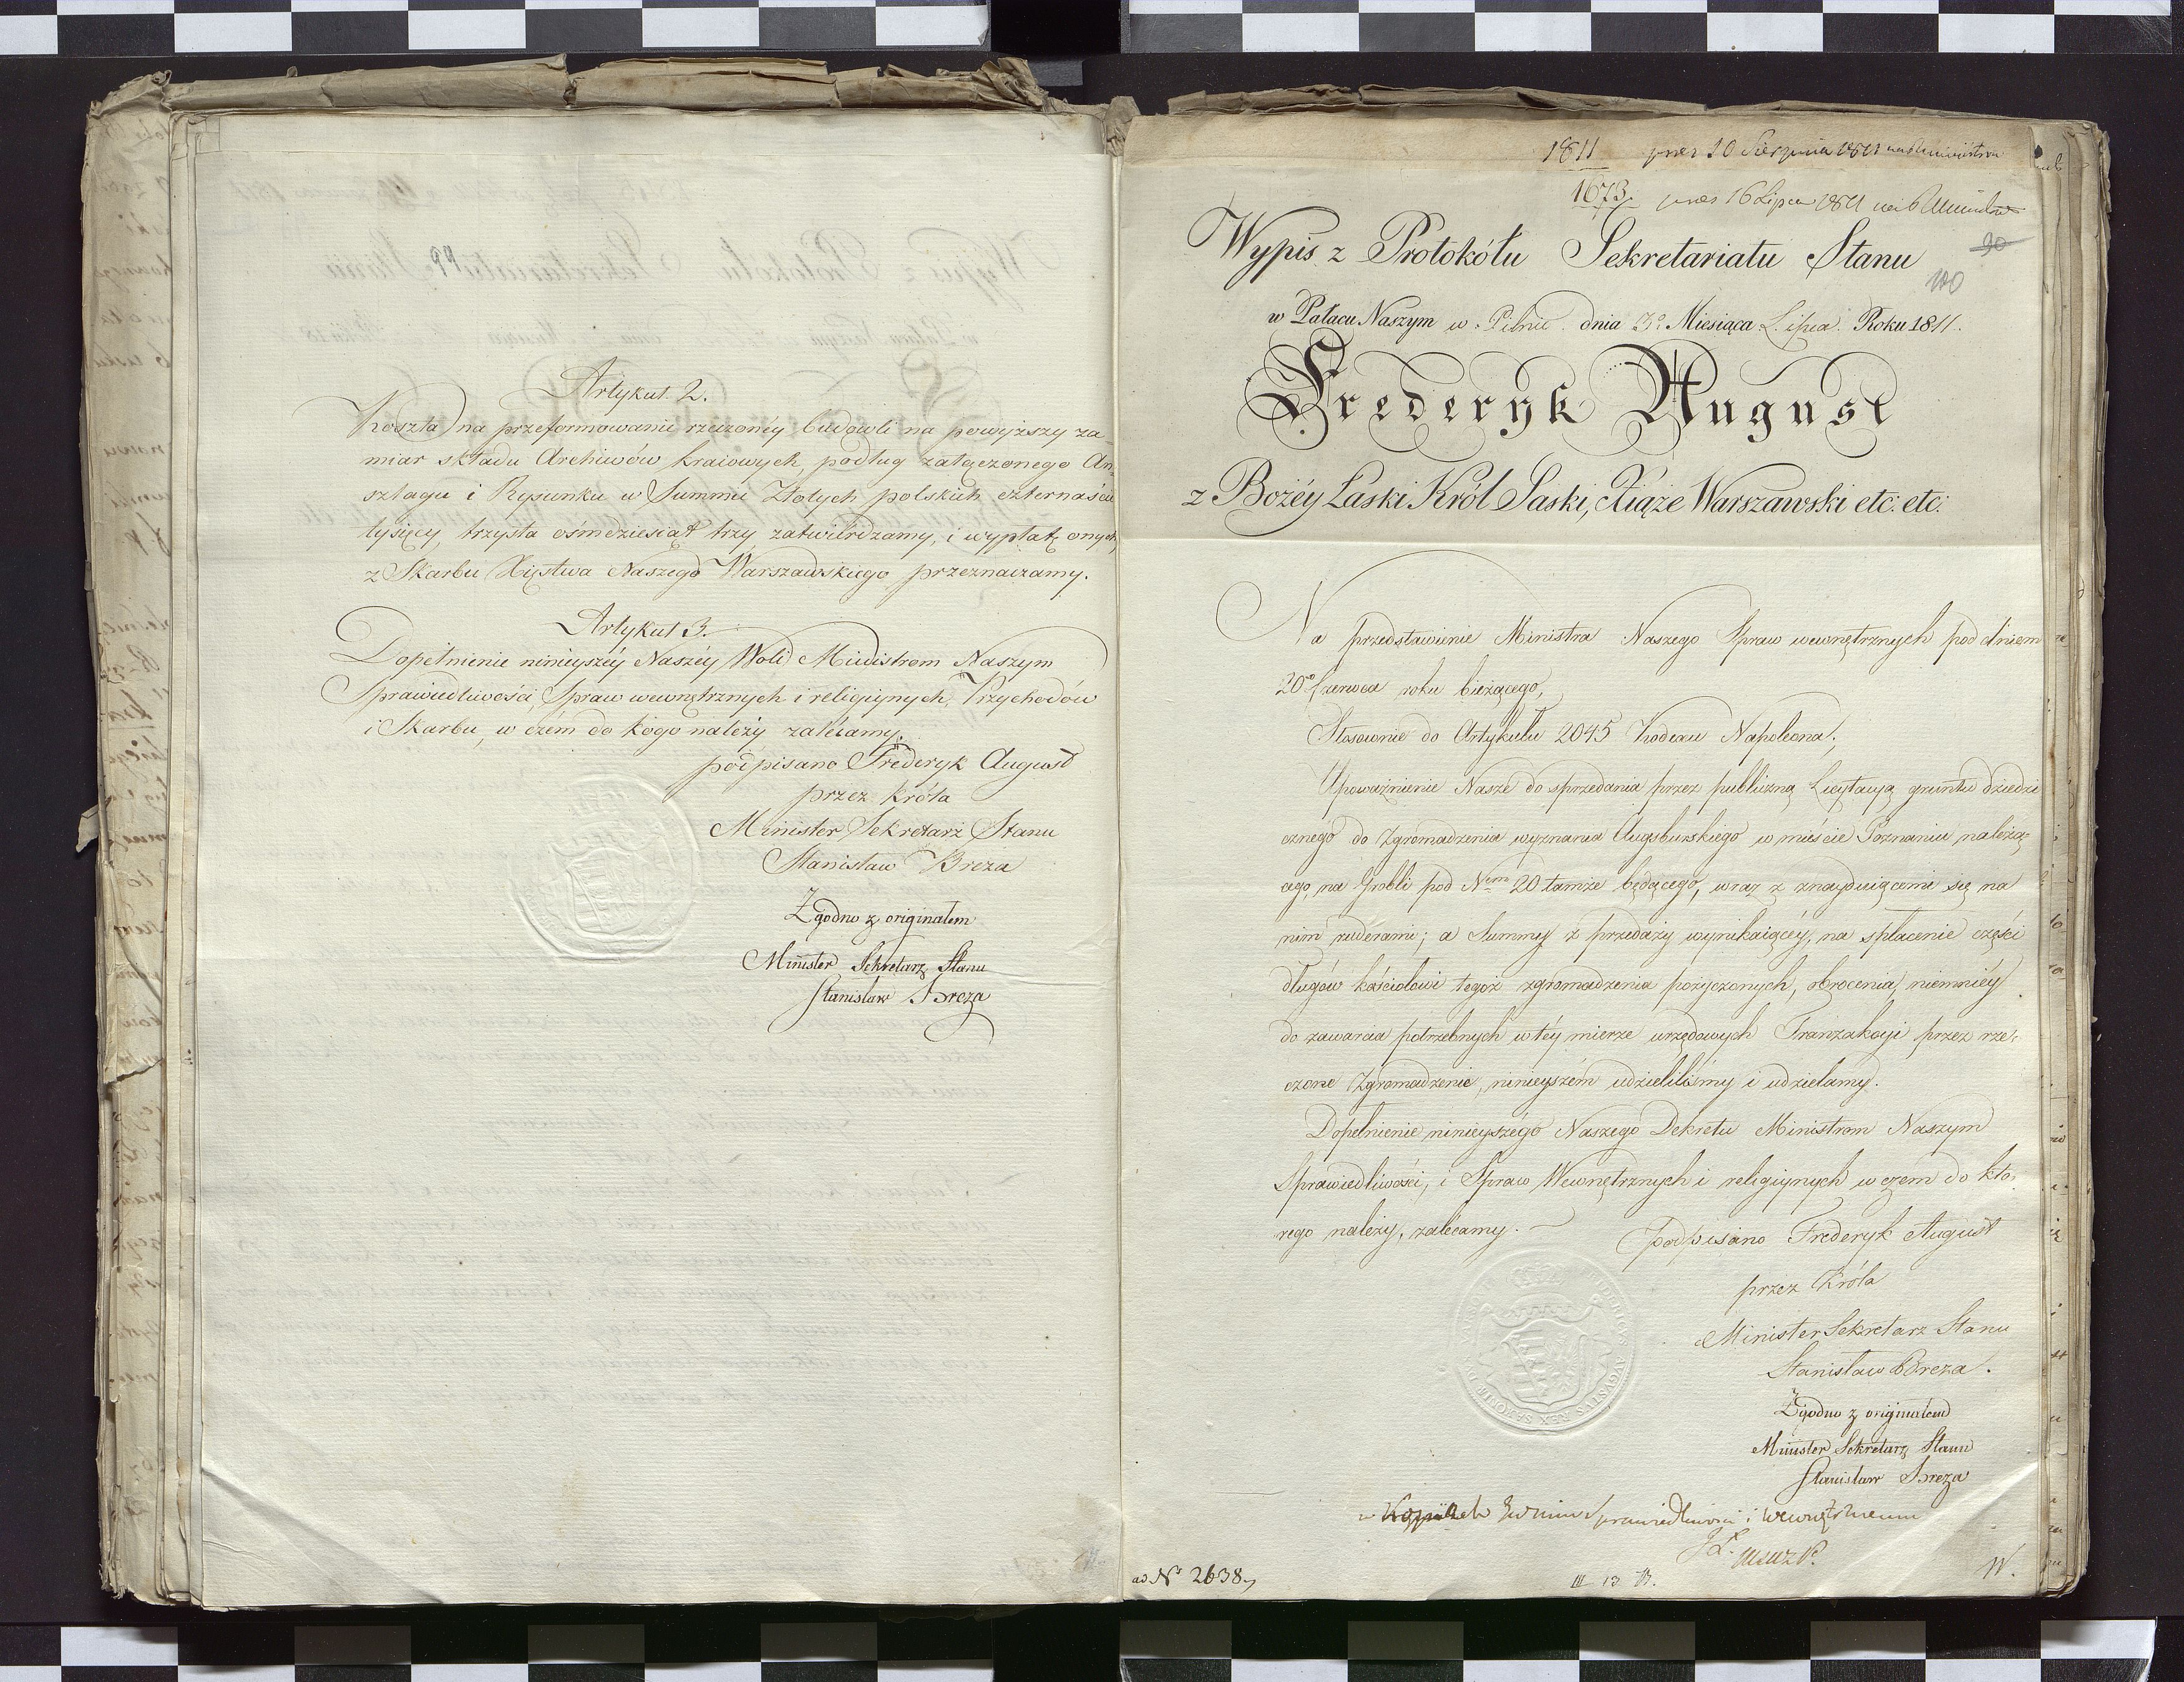 Artykuł 2.
Koszta na przeformowanie rzeczonéy budowli na powyższy za-
miar składu Archiwów kraiowych, podług załączonego An-
szlagu i Rysunku w Summie Złotych polskich czternaście
tysięcy, trzysta ośmdziesiąt trzy zatwierdzamy, i wypłatę onych
z Skarbu Xięstwa Naszego Warszawskiego przeznaczamy.
Artykuł 3.
Dopełnienie ninieyszéy Naszéy Woli Ministrom Naszym
Sprawiedliwości, Spraw wewnętrznych i religiynych, Przychodów
i Skarbu, w czém do kogo należy zalécamy.
podpisano Frederyk August
przez Króla
Minister Sekretarz Stanu
Stanisław Breza
Zgodno z originałem
Minister Sekretarz Stanu
Stanisław Breza
99
1811 pres 10 Sierpnia 1811
1673 pres 16 Lipca 1811
Wypis z Protokółu Sekretariatu Stanu
90
100
w Pałacu Naszym w Pilnic dnia 3º Miesiąca Lipca Roku 1811.
Frederyk August
z Bożéy Łaski Król Saski, Xiąże Warszawski etc. etc.
Na przedstawienie Ministra Naszego Spraw wewnętrznych pod dniem
20º Czerwca roku bieżącego,
Stosownie do Artykułu 2045 Kodexu Napoleona;
Upoważnienie Nasze do sprzedania przez publiczną Licytacyą gruntu dziedzi
cznego do Zgromadzenia wyznania Augsburskiego w mieście Poznaniu należą-
cego, na Grobli pod Nem 20 tamże będącego, wraz z znayduiącemi się na
nim ruderami; a Summy z przedaży wynikaiącéy, na spłacenie części
długów kościołowi tegoż zgromadzenia pożyczonych, obrócenia, niemniéy
do zawarcia potrzebnych w téy mierze urzędowych Tranzakcyi przez rze-
czone Zgromadzenie, ninieyszém udzieliliśmy i udzielamy.
Dopełnienie ninieyszégo Naszego Dekretu Ministrom Naszym
Sprawiedliwości, i Spraw Wewnętrznych i religiynych w czem do któ-
rego należy, zalécamy.
podpisano Frederyk August
przez Króla
Minister Sekretarz Stanu
Stanisław Breza.
Zgodno z originałem
Minister Sekretarz Stanu
Stanisław Breza
Sprawiedliwości i Wewnętrznemu
ad Nº 2638
III 13 B.
W.